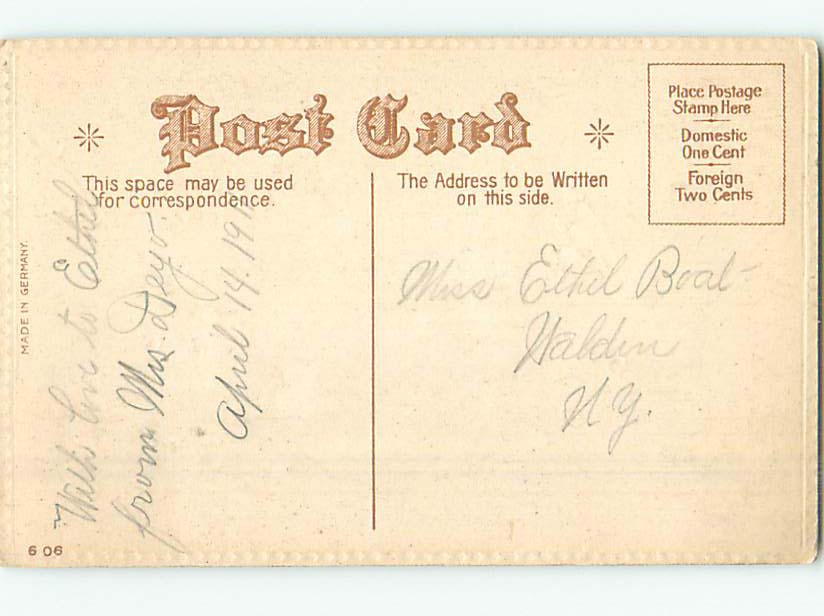 Post Card
This space may be used
for correspondence.
The Address to be Written
on this side.
Place Postage
Stamp Here
Domestic
One Cent
Foreign
Two Cents
MADE IN GERMANY.
With love to Ethel
from Mrs. Deyo.
April 14. 191
Miss Ethel Boal
Walden
N Y.
606